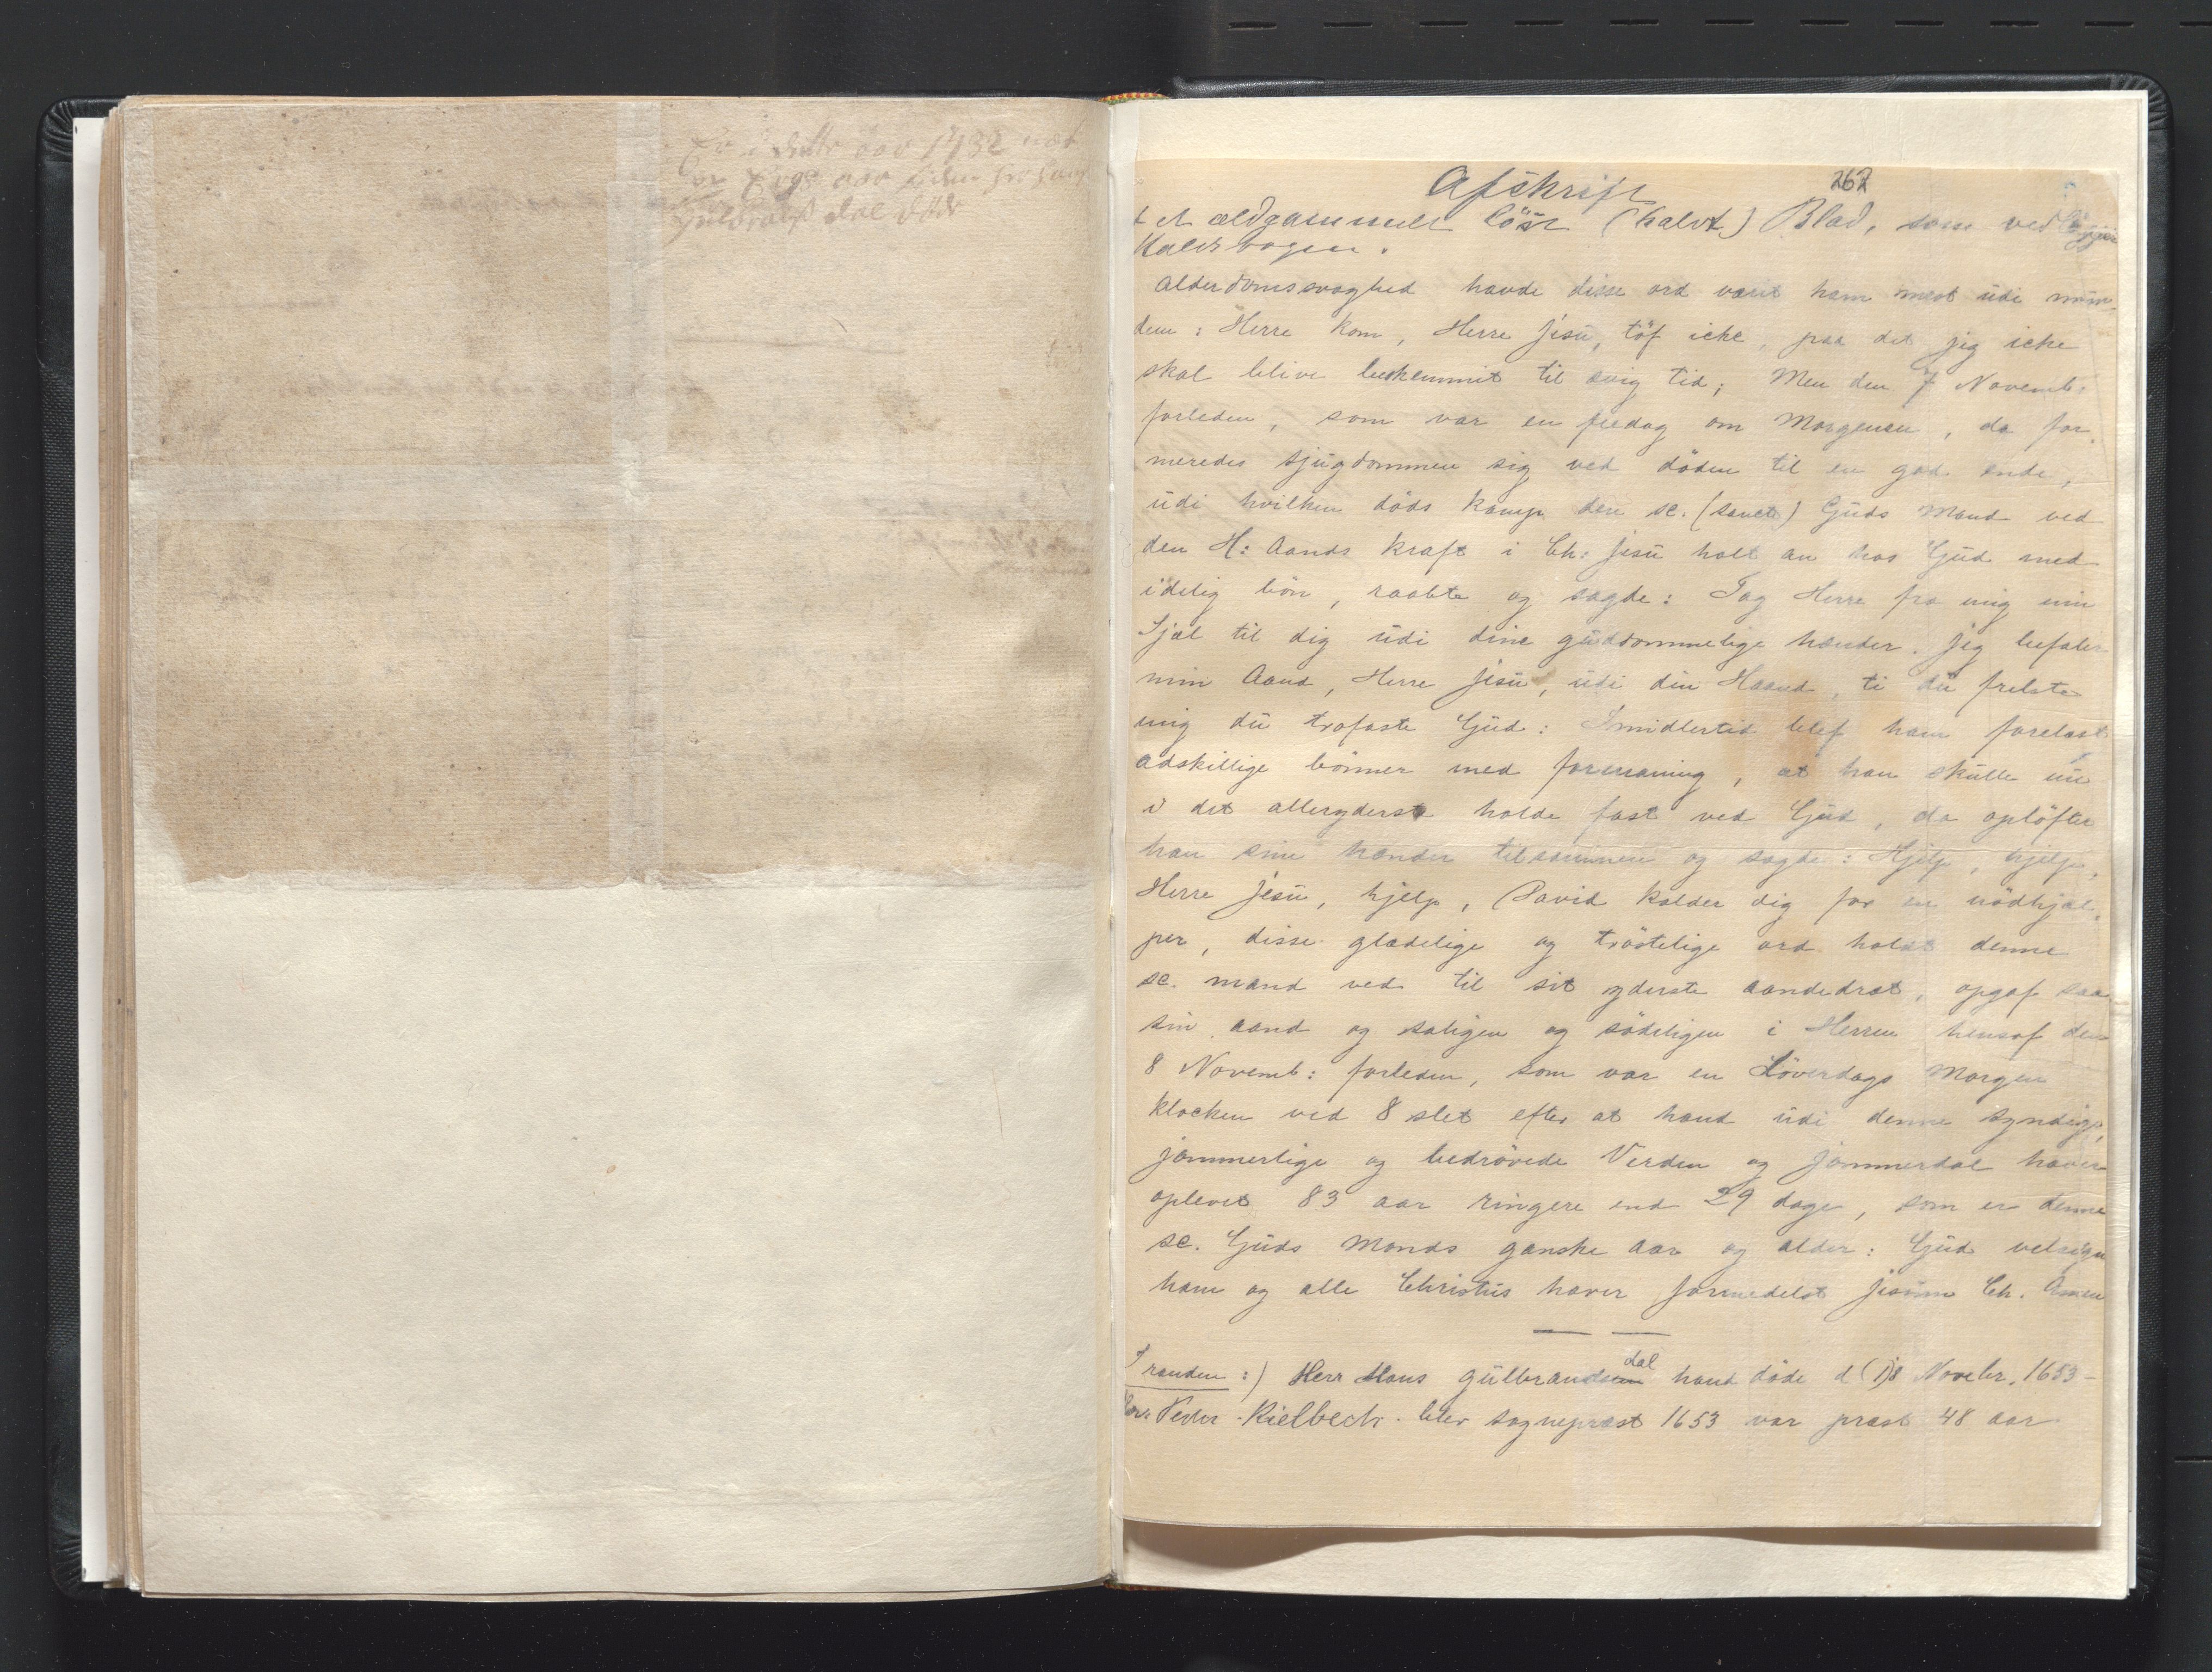 aar 1732
dal døde
Afskrift 262
et ældgammelt löst (halvt) Blad, som ved
Kaldsbogen.
alderdomssvaghed havde disse ord varit ham mest udi mun-
den: Herre kom, Herre Jesu, töf icke, paa det jeg icke
skal blive beskemmit til evig tid; Men den 7 Novemb.
forleden, som var en fredag om Morgenen, da for-
meredes sjugdommen sig ved döden til en god ende,
udi hvilken döds kamp den sc. (sanct) Guds Mand ved
den H: Aands kraft i Ch: Jesu holt an hos Gud med
idelig bön, raabte og sagde: Tag Herre fra mig min
Sjæl til dig udi dine guddommelige hænder. Jeg befaler
min Aand, Herre Jesu, udi din Haand, ti du frelste
mig du trofaste Gud: Imidlertid blef ham forelæst
adskillige bönner med formaning, at han skulle nu
i det alleryderste holde fast ved Gud, da oplöfter
han sine hænder tilsammen og sagde: Hjelp, hjelp,
Herre Jesu, hjelp, David kalder dig for en nödhjæl-
per, disse glædelige og tröstelige ord holdt denne
sc. mand ved til sit yderste aandedræt, opgaf saa
sin aand og saligen og södeligen i Herren hensof den
8 Novemb: forleden, som var en Löverdags Morgen
klocken ved 8 slet efter at hand udi denne syndige,
jammerlige og bedrövede Verden og jammerdal haver
oplevet 83 aar ringere end 29 dage, som er denne
sc. Guds Mands ganske aar og alder: Gud velsigne
ham og alle Christus haver formedelst Jesum Ch. Amen
I randen:) Herr Hans gulbrandsdal hand döde d (i)8 Novebr, 1653-
Herr Peder Kielbech blev sognepræst 1653 var præst 48 aar